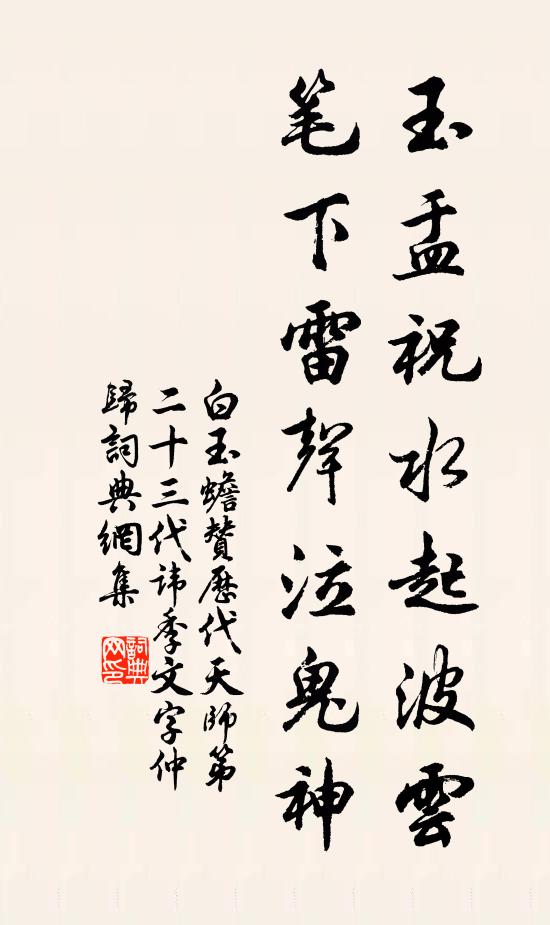 玉盂祝水起波雲
笔下雷聲泣鬼神
白玉蟾贊歷代天師第
二十三代諱季文字仲
歸詞典網集
詞典網印